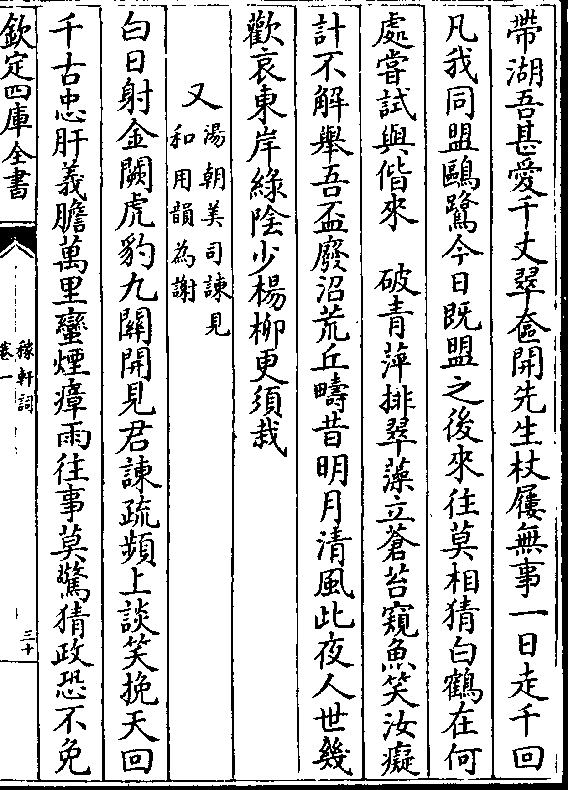 帶湖吾甚愛千丈翠奩開先生杖屨無事一日走千回
凡我同盟鷗鷺今日既盟之後來往莫相猜白鶴在何
處嘗試與偕來　破青萍排翠藻立蒼苔窺魚笑汝癡
計不解舉吾盃廢沼荒丘疇昔明月清風此夜人世幾
歡哀東岸綠陰少楊柳更須栽
又
湯朝美司諫見
和用韻為謝
白日射金闕虎豹九關開見君諫疏頻上談笑挽天回
千古忠肝義膽萬里蠻煙瘴雨往事莫驚猜政恐不免
欽定四庫全書
稼軒詞
卷一
三十